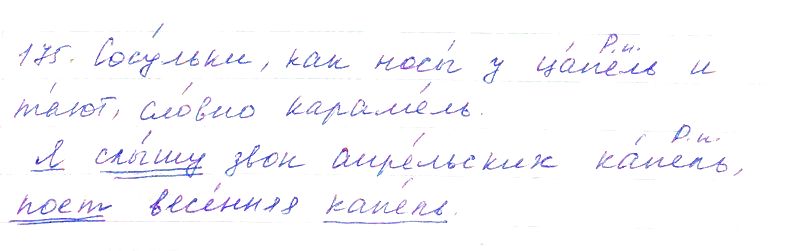 Р.п.
175. Сосу́льки, как носы́ у ца́пель и
та́ют, сло́вно караме́ль.
Р.п.
Я слы́шу звон апре́льских ка́пель,
поёт весе́нняя капе́ль.